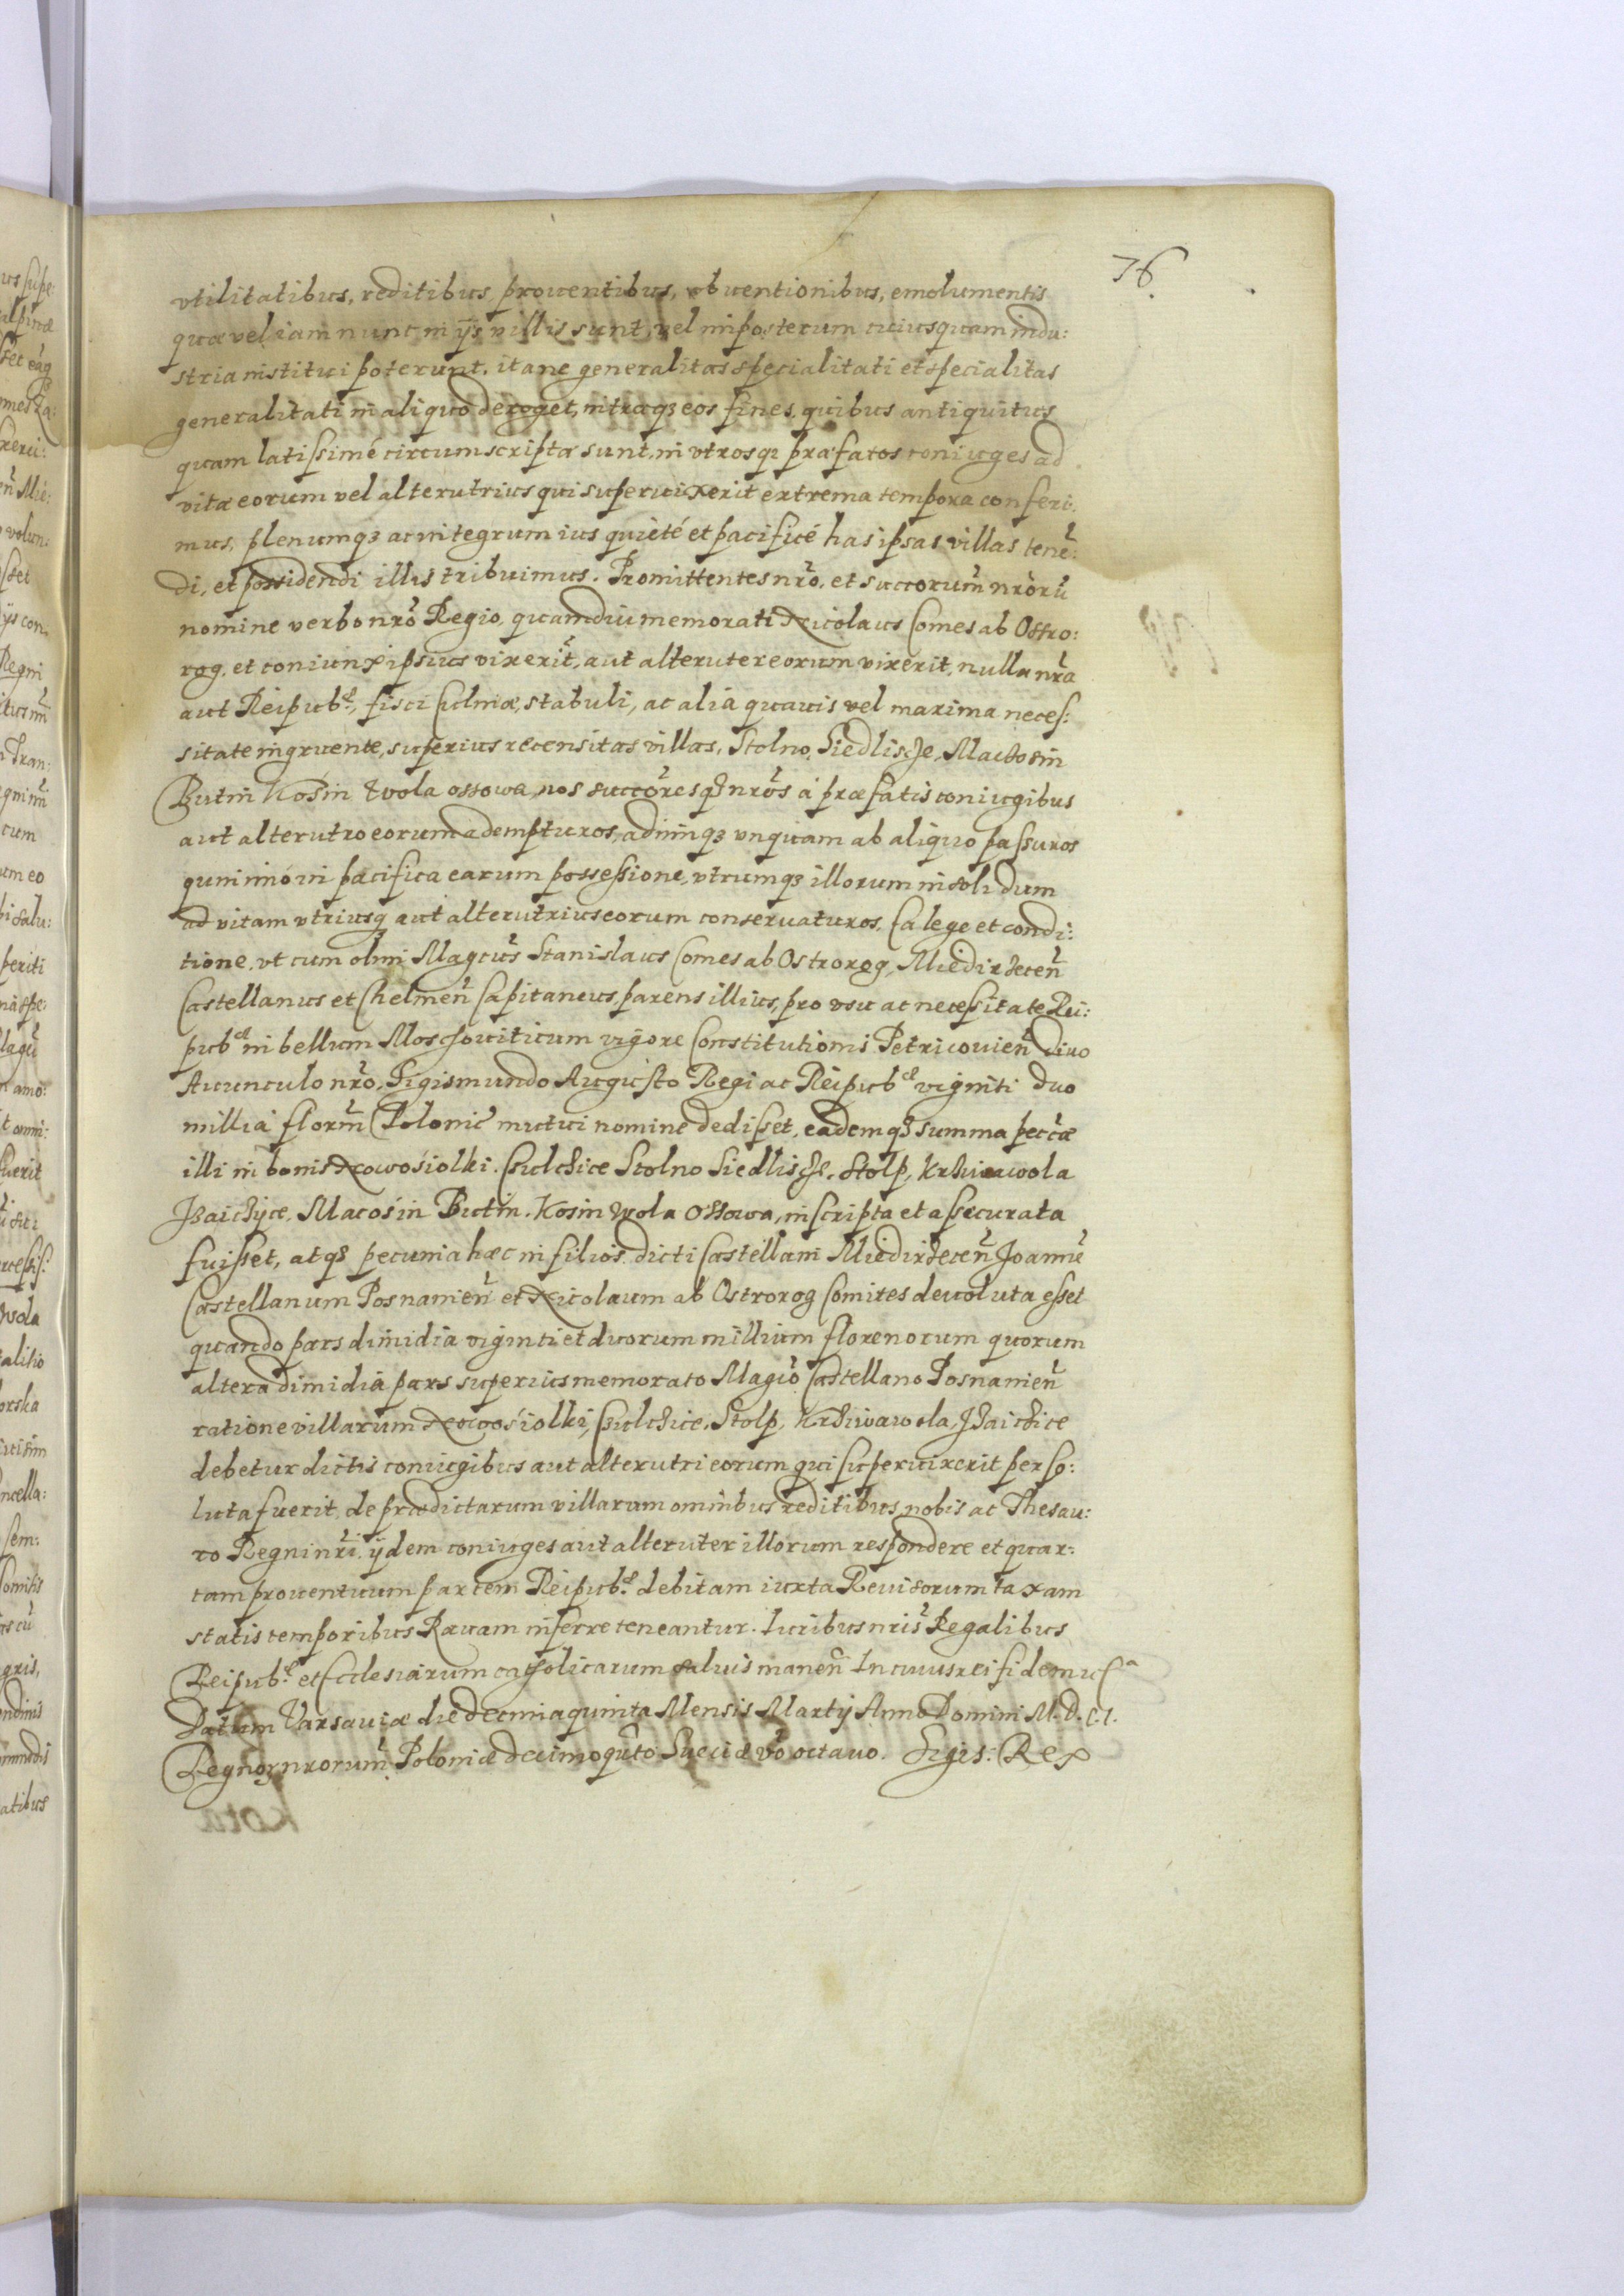 76
vtilitatibus, reditibus, prouentibus, obuentionibus, emolumentis
quæ vel iam nunc in ijs villis sunt, vel inposterum cuiusquam indu:
stria institui poterunt. ita ne generalitas specialitati et specialitas
generalitati in aliquo deroget, intraq3 eos fines, quibus antiquitus
quam latissimé circumscriptæ sunt, in vtrosq3 præfatos coniuges ad
vitæ eorum vel alterutrius qui superuixerit extrema tempora conferi:
mus, plenumq3 ac integrum ius quieté et pacificé has ipsas villas tenē:
di, et possidendi illis tribuimus. Promittentes nr̃o, et succorum̃ nrõrū
nomine verbo nrõ Regio, quamdiu memorati Nicolaus Comes ab Ostro:
rog, et coniunx ipsius vixerĩt, aut alteruter eorum vixerit, nulla nrã
aut Reipub<sup>cæ</sup>, fisci Culinæ, stabuli, ac alia quauis vel maxima neces:
sitate ingruente, superius recensitas villas, Stolno, Siedliscze, Maczosin
Butin Kosin Wola ossowa, nos succõresq3 nrõs à præfatis coniugibus
aut alterutro eorum adempturos, adimiq3 vnquam ab aliquo passuros
quinimó in pacifica earum possessione, vtrumq3 illorum in solidum
ad vitam vtriusq3 aut alterutrius eorum conseruaturos. Ea lege et condi:
tione, vt cum olim Magcũs Stanislaus Comes ab Ostrorog, Miedirzecen̄
Castellanus et Chelmen̄ Capitaneus, parens illius, pro vsu ac necessitate Rei:
pub<sup>cæ</sup> in bellum Moschouiticum vigore Constitutionis Petricouien̄ Diuo
Auunculo nrõ, Sigismundo Augusto Regi ac Reipub<sup>cæ</sup> viginti duo
millia florm̃ Polonic̃ mutui nomine dedisset, eademq3 summa peccæ
illi in bonis Nowosiolki. Czulczice Stolno Siedliscze, Stolp, Krziwawola
Jzaiczyce, Macosin Butin. Kosin Wola Ossowa, inscripta et assecurata
fuisset, atq3 pecunia hæc in filios dicti Castellani Miedirzecen̄ Joannē
Castellanum Posnanien̄ et Nicolaum ab Ostrorog Comites deuoluta esset
quando pars dimidia viginti et duorum millium florenorum quorum
altera dimidia pars superius memorato Magcõ Castellano Posnanien̄
ratione villarum Nowosiolki, Czulczice, Stolp, Krziwawola, Jzaiczice
debetur dictis coniugibus aut alterutri eorum qui superuixerit perso:
luta fuerit, de prædictarum villarum omnibus reditibus nobis ac Thesau:
ro Regni nrĩ, ijdem coniuges aut alteruter illorum respondere et quar:
tam prouentuum partem Reipub<sup>cæ</sup> debitam iuxta Reuisorum taxam
statis temporibus Rauam inferre teneantur. Iuribus nris̃ Regalibus
Reipub<sup>cæ</sup> et Ecclesiarum catholicarum saluis manen̄ In cuius rei fidem
Datum Varsauiæ die decima quinta Mensis Martij Anno Domini M.D.C.I.
Regnor nrorum̃ Poloniæ decimo qũto Sueciæ võ octauo. Sigis: Rex